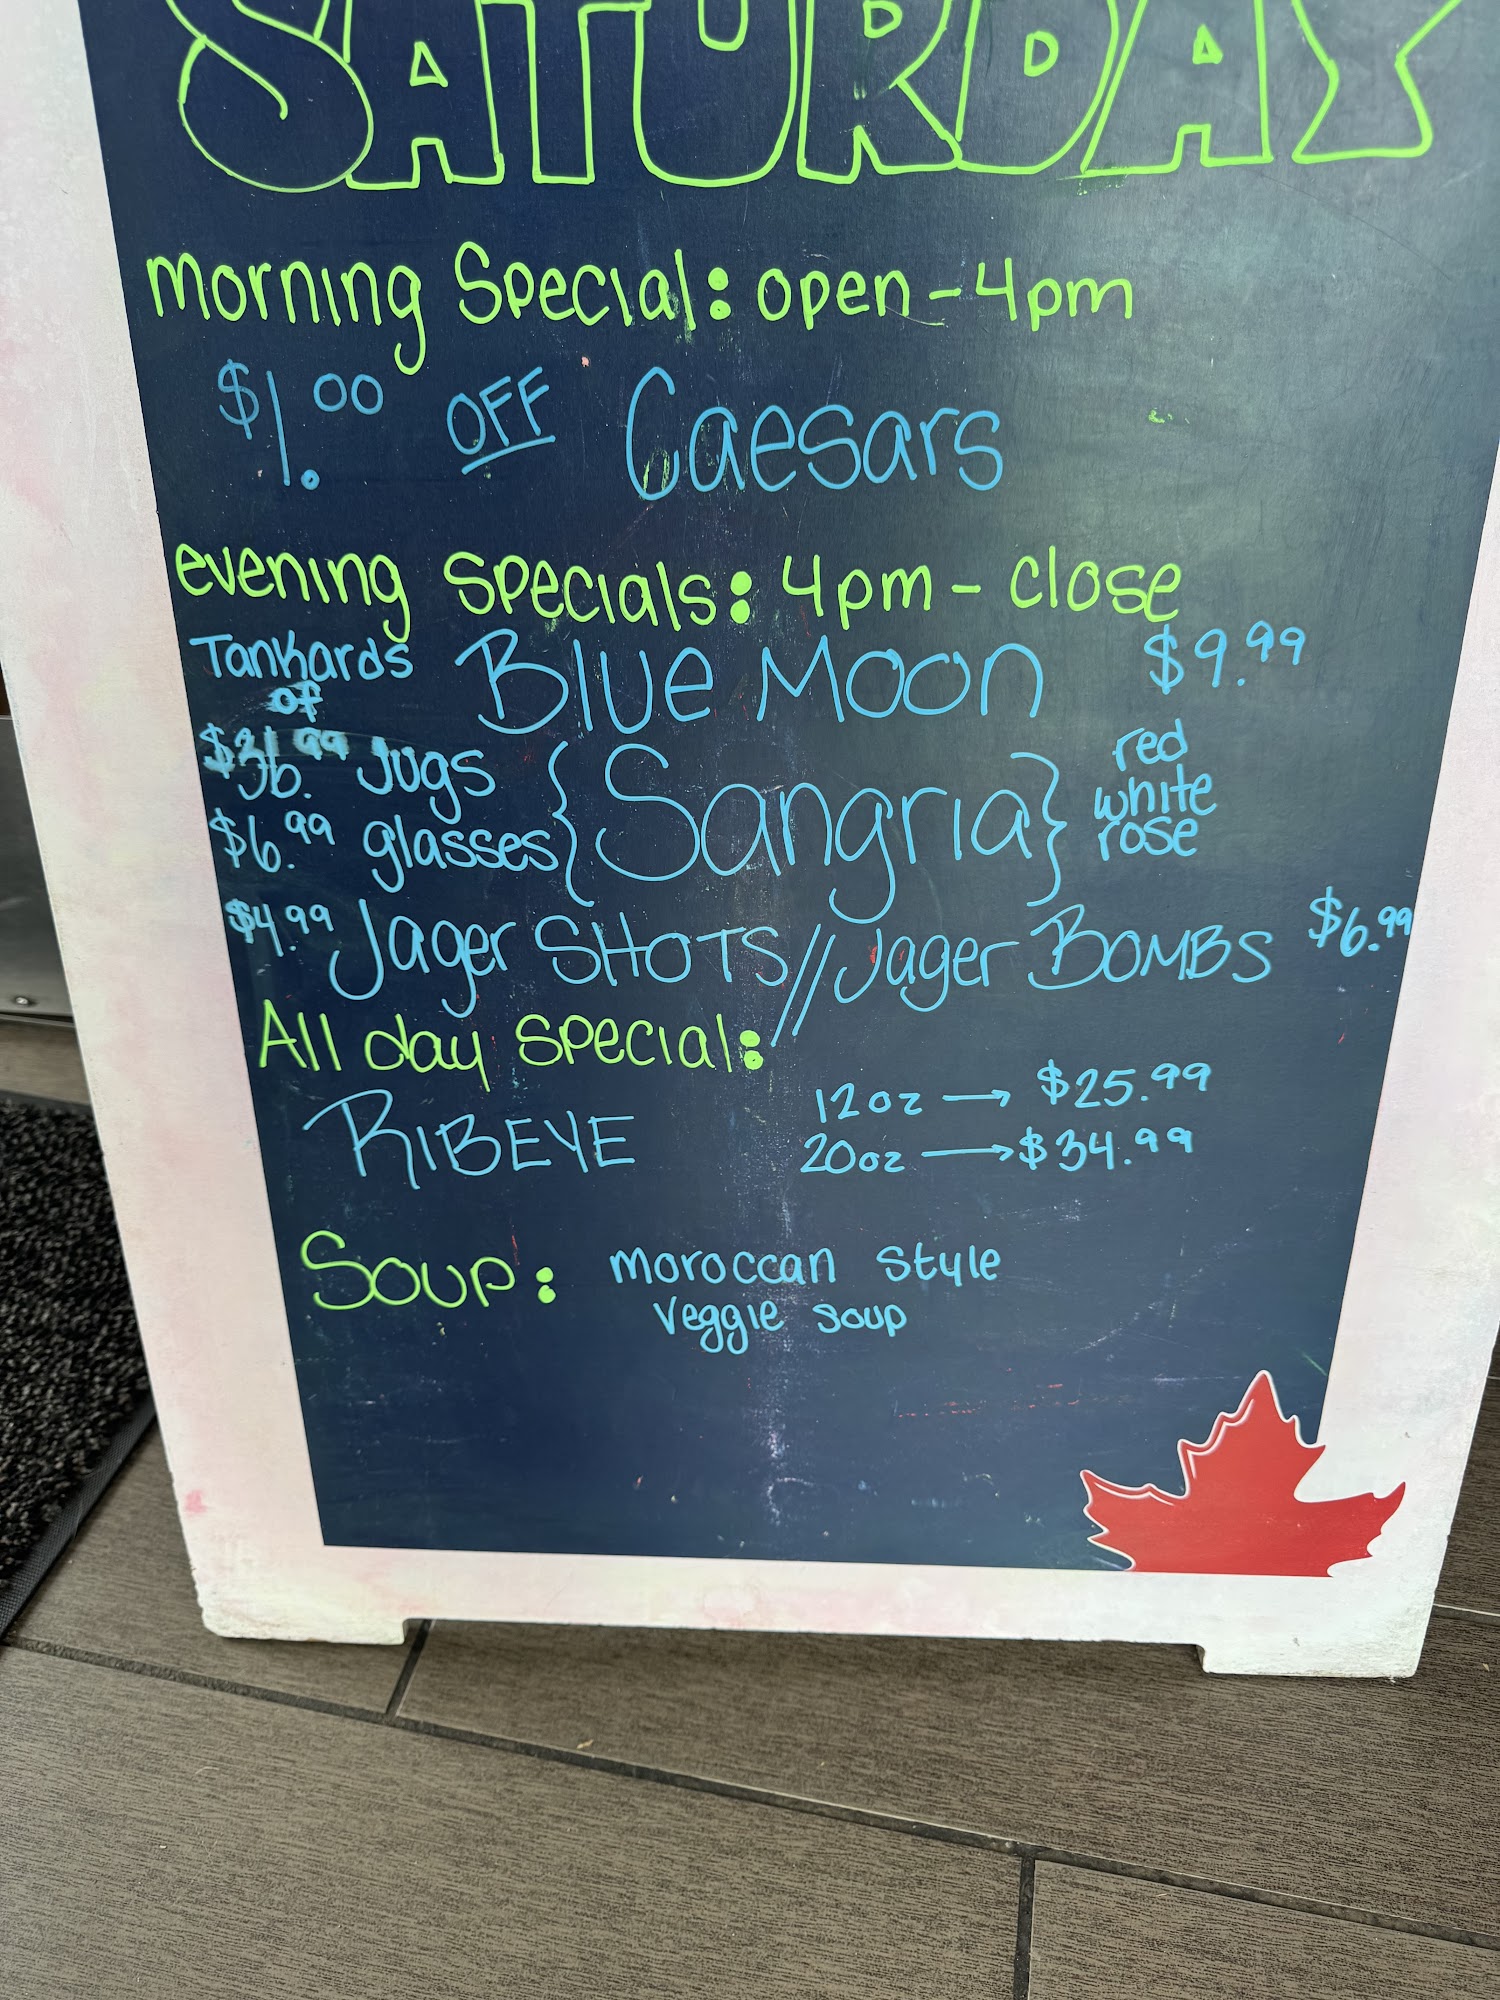 SATURDAY
morning Special: open - 4pm
$1.00 OFF Caesars
evening specials: 4pm - close
Tankards of Blue Moon $9.99
jugs
$6.99 glasses {Sangria} red white rose
$4.99 Jager SHOTS // Jager BOMBS $6.99
All day special:
RIBEYE 12oz → $25.99
20oz → $34.99
Soup: moroccan style
veggie soup